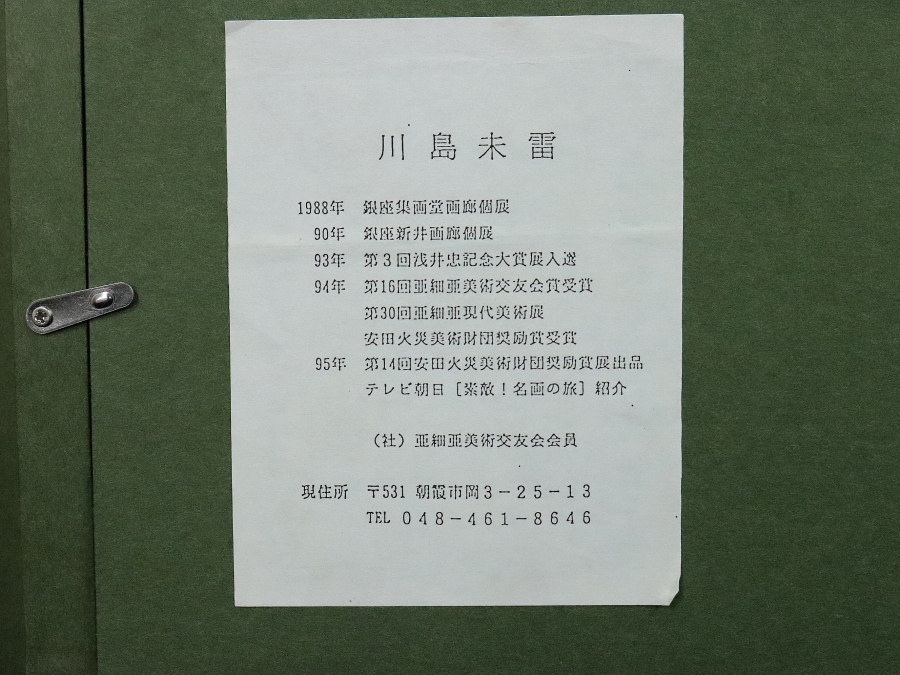 川島未雷
1988年 銀座集画堂画廊個展
90年 銀座新井画廊個展
93年 第3回浅井忠記念大賞展入選
94年 第16回亜細亜美術交友会賞受賞
第30回亜細亜現代美術展
安田火災美術財団奨励賞受賞
95年 第14回安田火災美術財団奨励賞展出品
テレビ朝日[素敵!名画の旅]紹介
(社)亜細亜美術交友会会員
現住所 〒531 朝霞市岡3-25-13
TEL 048-461-8646